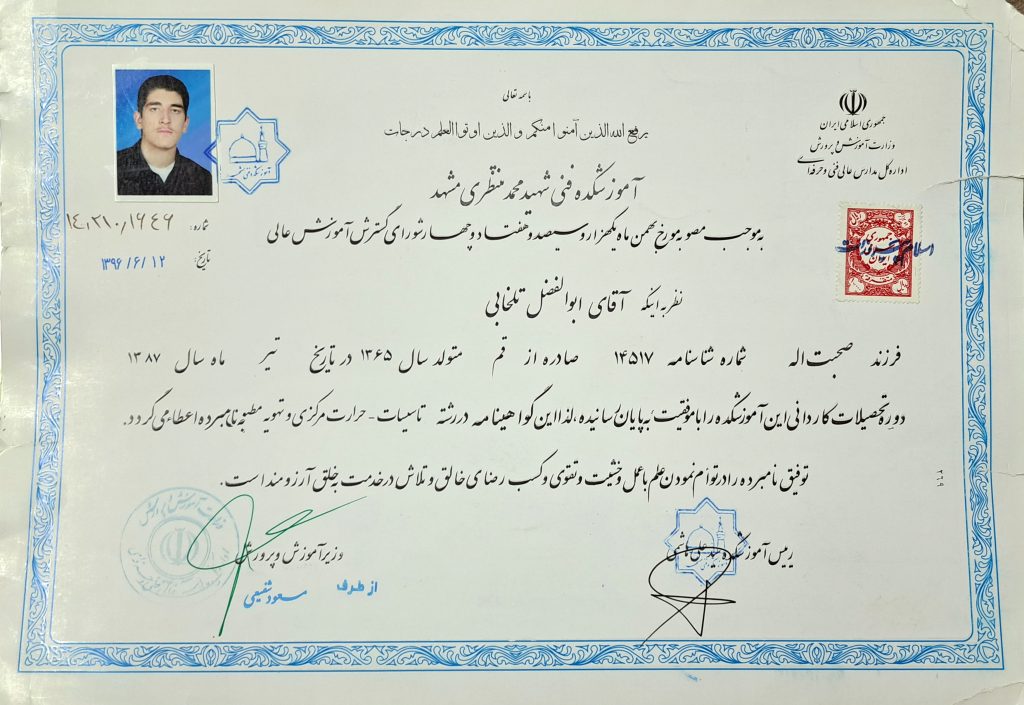 باسمه تعالی
یرفع الله الذین آمنوا منکم والذین اوتوا العلم درجات
جمهوری اسلامی ایران
وزارت آموزش و پرورش
اداره کل مدارس عالی فنی و حرفه‌ای
آموزشکده فنی شهید محمد منتظری مشهد
شماره: ۱۴٫۲۱۰٫۱۶۴۶
تاریخ: ۱۳۹۶/۶/۱۲
به موجب مصوبه مورخ بهمن ماه یکهزار و سیصد و هفتاد و چهار شورای گسترش آموزش عالی
نظر به اینکه آقای ابوالفضل تلخابی
فرزند صحبت اله شماره شناسنامه ۱۴۵۱۷ صادره از قم متولد سال ۱۳۶۵ در تاریخ تیر ماه سال ۱۳۸۷
دوره تحصیلات کاردانی این آموزشکده را با موفقیت به پایان رسانیده، لذا این گواهینامه در رشته تاسیسات - حرارت مرکزی و تهویه مطبوع به نامبرده اعطاء می گردد.
توفیق نامبرده را در توأم نمودن علم با عمل و خشیت و تقوی و کسب رضای خالق و تلاش در خدمت به خلق آرزومند است.
رییس آموزشکده سید علی هاشمی
وزیر آموزش و پرورش
از طرف
مسعود شفیعی
جمهوری
ایران